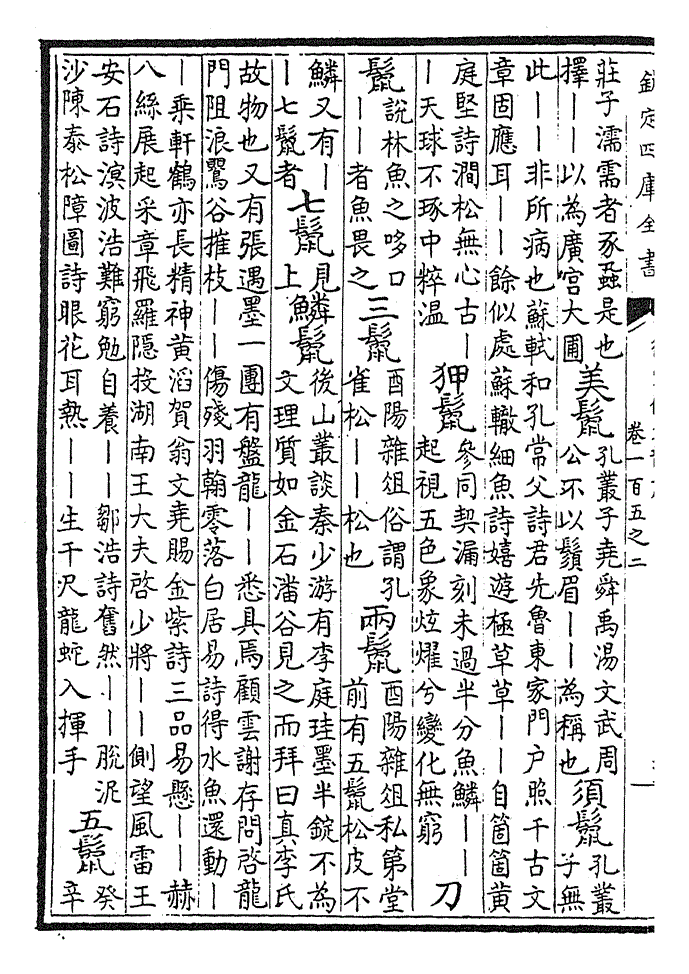 欽定四庫全書
卷一百五之二
莊子濡需者豕蝨是也
擇――以為廣宫大囿
美鬛
孔叢子堯舜禹湯文武周
公不以鬚眉――為稱也
須鬛
孔叢
子無
此――非所病也蘇軾和孔常父詩君先魯東家門户照千古文
章固應耳――餘似處蘇轍細魚詩嬉遊極草草――自箇箇黄
庭堅詩澗松無心古―
―天球不琢中粹温
狎鬛
參同契漏刻未過半分魚鱗――
起視五色象炫燿兮變化無窮
刀
鬛
說林魚之哆口
――者魚畏之
三鬛
酉陽雜俎俗謂孔
雀松――松也
兩鬛
酉陽雜俎私第堂
前有五鬛松皮不
鱗又有―
―七鬛者
七鬛
見
上
鱗鬛
後山叢談秦少游有李庭珪墨半錠不為
文理質如金石潘谷見之而拜曰真李氏
故物也又有張遇墨一團有盤龍――悉具焉顧雲謝存問啓龍
門阻浪鸎谷摧枝――傷殘羽翰零落白居易詩得水魚還動―
―乘軒鶴亦長精神黄滔賀翁文堯賜金紫詩三品易懸――赫
八絲展起采章飛羅隱投湖南王大夫啓少將――側望風雷王
安石詩溟波浩難窮勉自養――鄒浩詩奮然――脱泥
沙陳泰松障圖詩眼花耳熱――生千尺龍蛇入揮手
五鬛
癸
辛